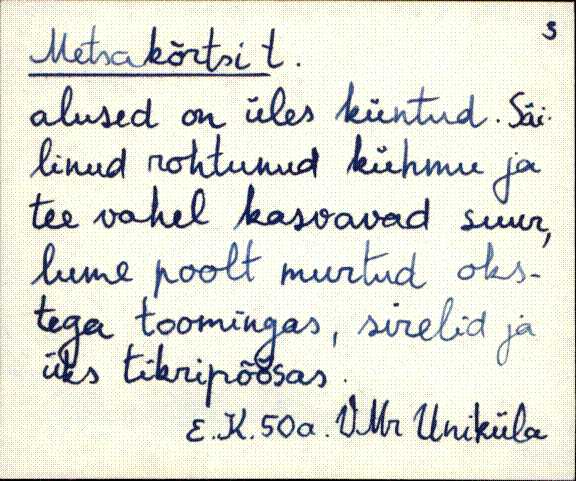 s
Metsakõrtsi t.
alused on üles küntud. Säi-
linud rohtunud kühmu ja
tee vahel kasvavad suur,
lume poolt murtud oks-
tega toomingas, sirelid ja
üks tikripõõsas.
E.K. 50a. VMr Uniküla